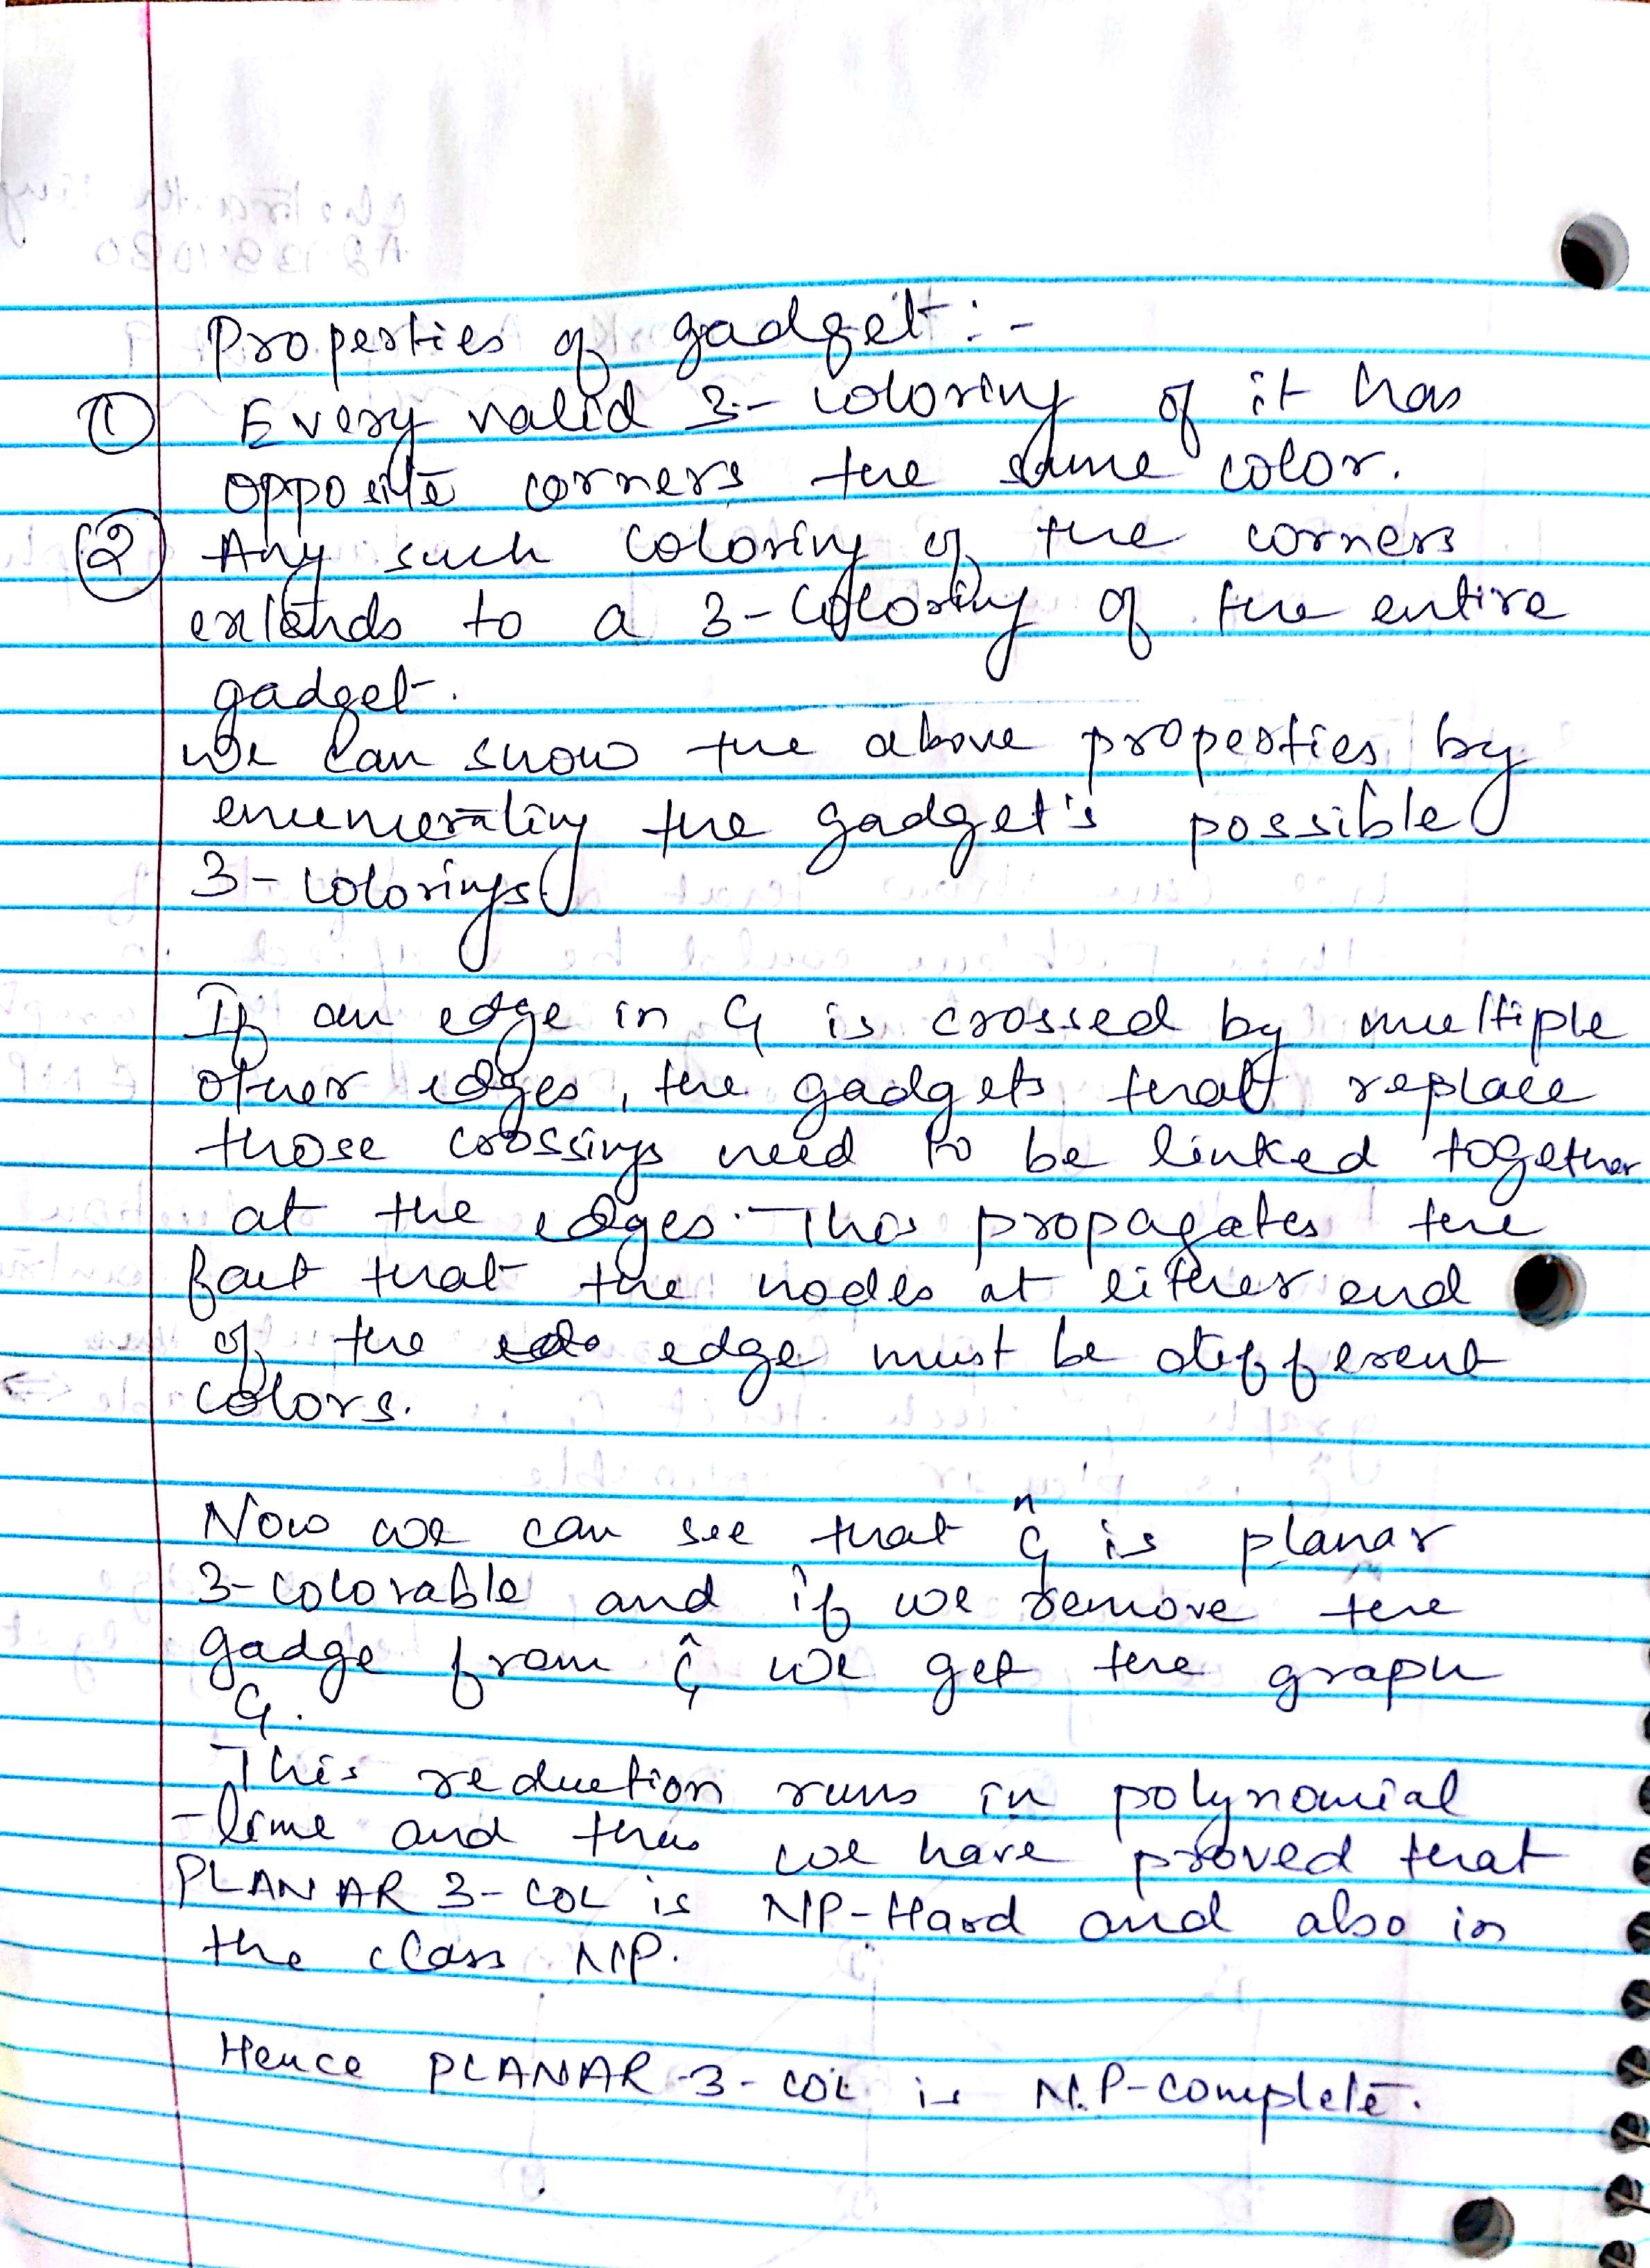 Properties of gadget :-
① Every valid 3-coloring of it has
opposite corners the same color.
② Any such coloring of the corners
extends to a 3-coloring of the entire
gadget.
We can show the above properties by
enumerating the gadget's possible
3-colorings
If an edge in G is crossed by multiple
other edges, the gadgets that replace
those crossings need to be linked together
at the edges. This propagates the
fact that the nodes at either end
of the edge must be different
colors.
Now we can see that Ĝ is planar
3-colorable and if we remove the
gadge from Ĝ we get the graph
G.
This reduction runs in polynomial
-time and thus we have proved that
PLANAR 3-COL is NP-Hard and also in
the class NP.
Hence PLANAR-3-COL is NP-complete.